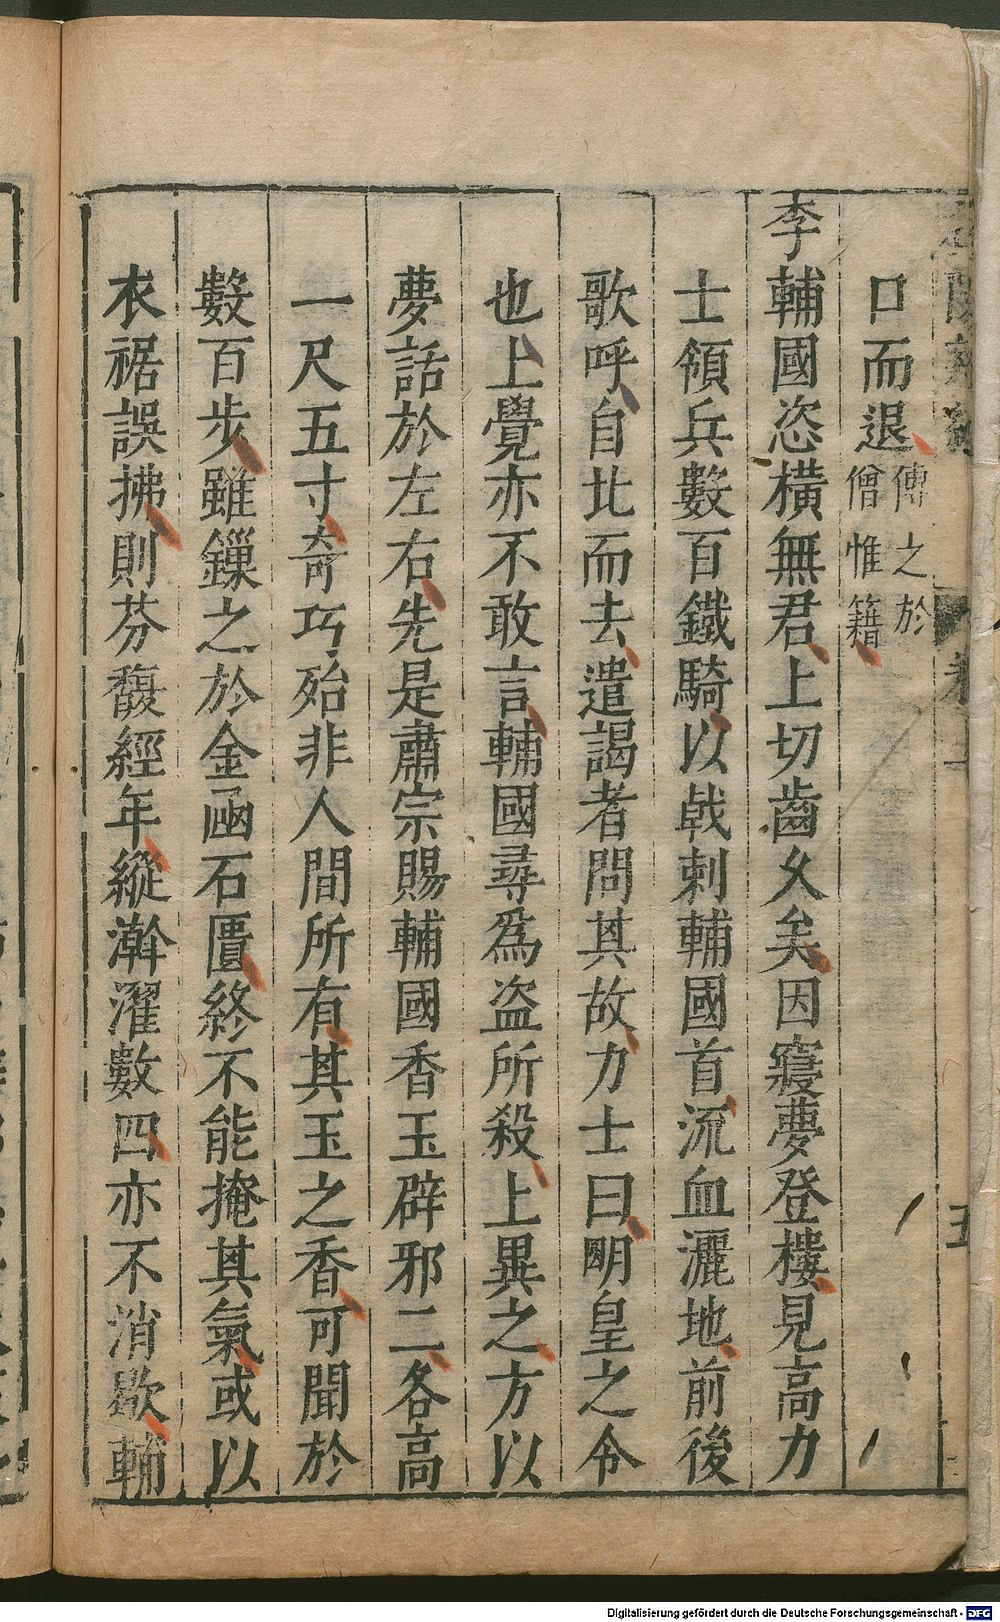 口而退傳之於僧惟籍
李輔國恣橫無君上切齒久矣因寢夢登樓見高力
士領兵數百鐵騎以戟刺輔國首流血灑地前後
歌呼自北而去遣謁者問其故力士曰明皇之令
也上覺亦不敢言輔國尋爲盜所殺上異之方以
夢話於左右先是肅宗賜輔國香玉辟邪二各高
一尺五寸奇巧殆非人間所有其玉之香可聞於
數百步雖鏁之於金函石匱終不能掩其氣或以
衣裾誤拂則芬馥經年縱澣濯數四亦不消歇輔
五
Digitalisierung gefördert durch die Deutsche Forschungsgemeinschaft - DFG